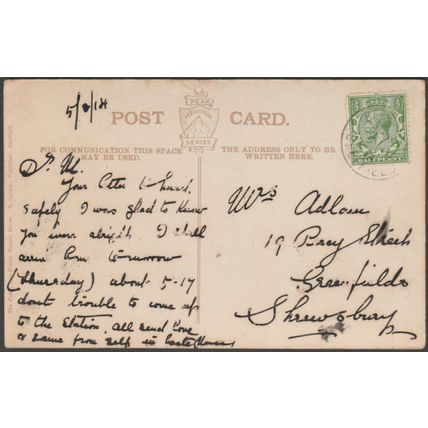 5/8/14
POST CARD.
PEAK
SERIES
FOR COMMUNICATION THIS SPACE
MAY BE USED.
THE ADDRESS ONLY TO BE
WRITTEN HERE.
HALFPENNY
D. M.
Your letter to hand.
Safely I was glad to know
you were alright. I shall
arrive home tomorrow
(Thursday) about 5-17
dont trouble to come up
to the Station. All send love
& same from self in haste
Mrs Adlam
19 Street
Greenfields
Shrewsbury